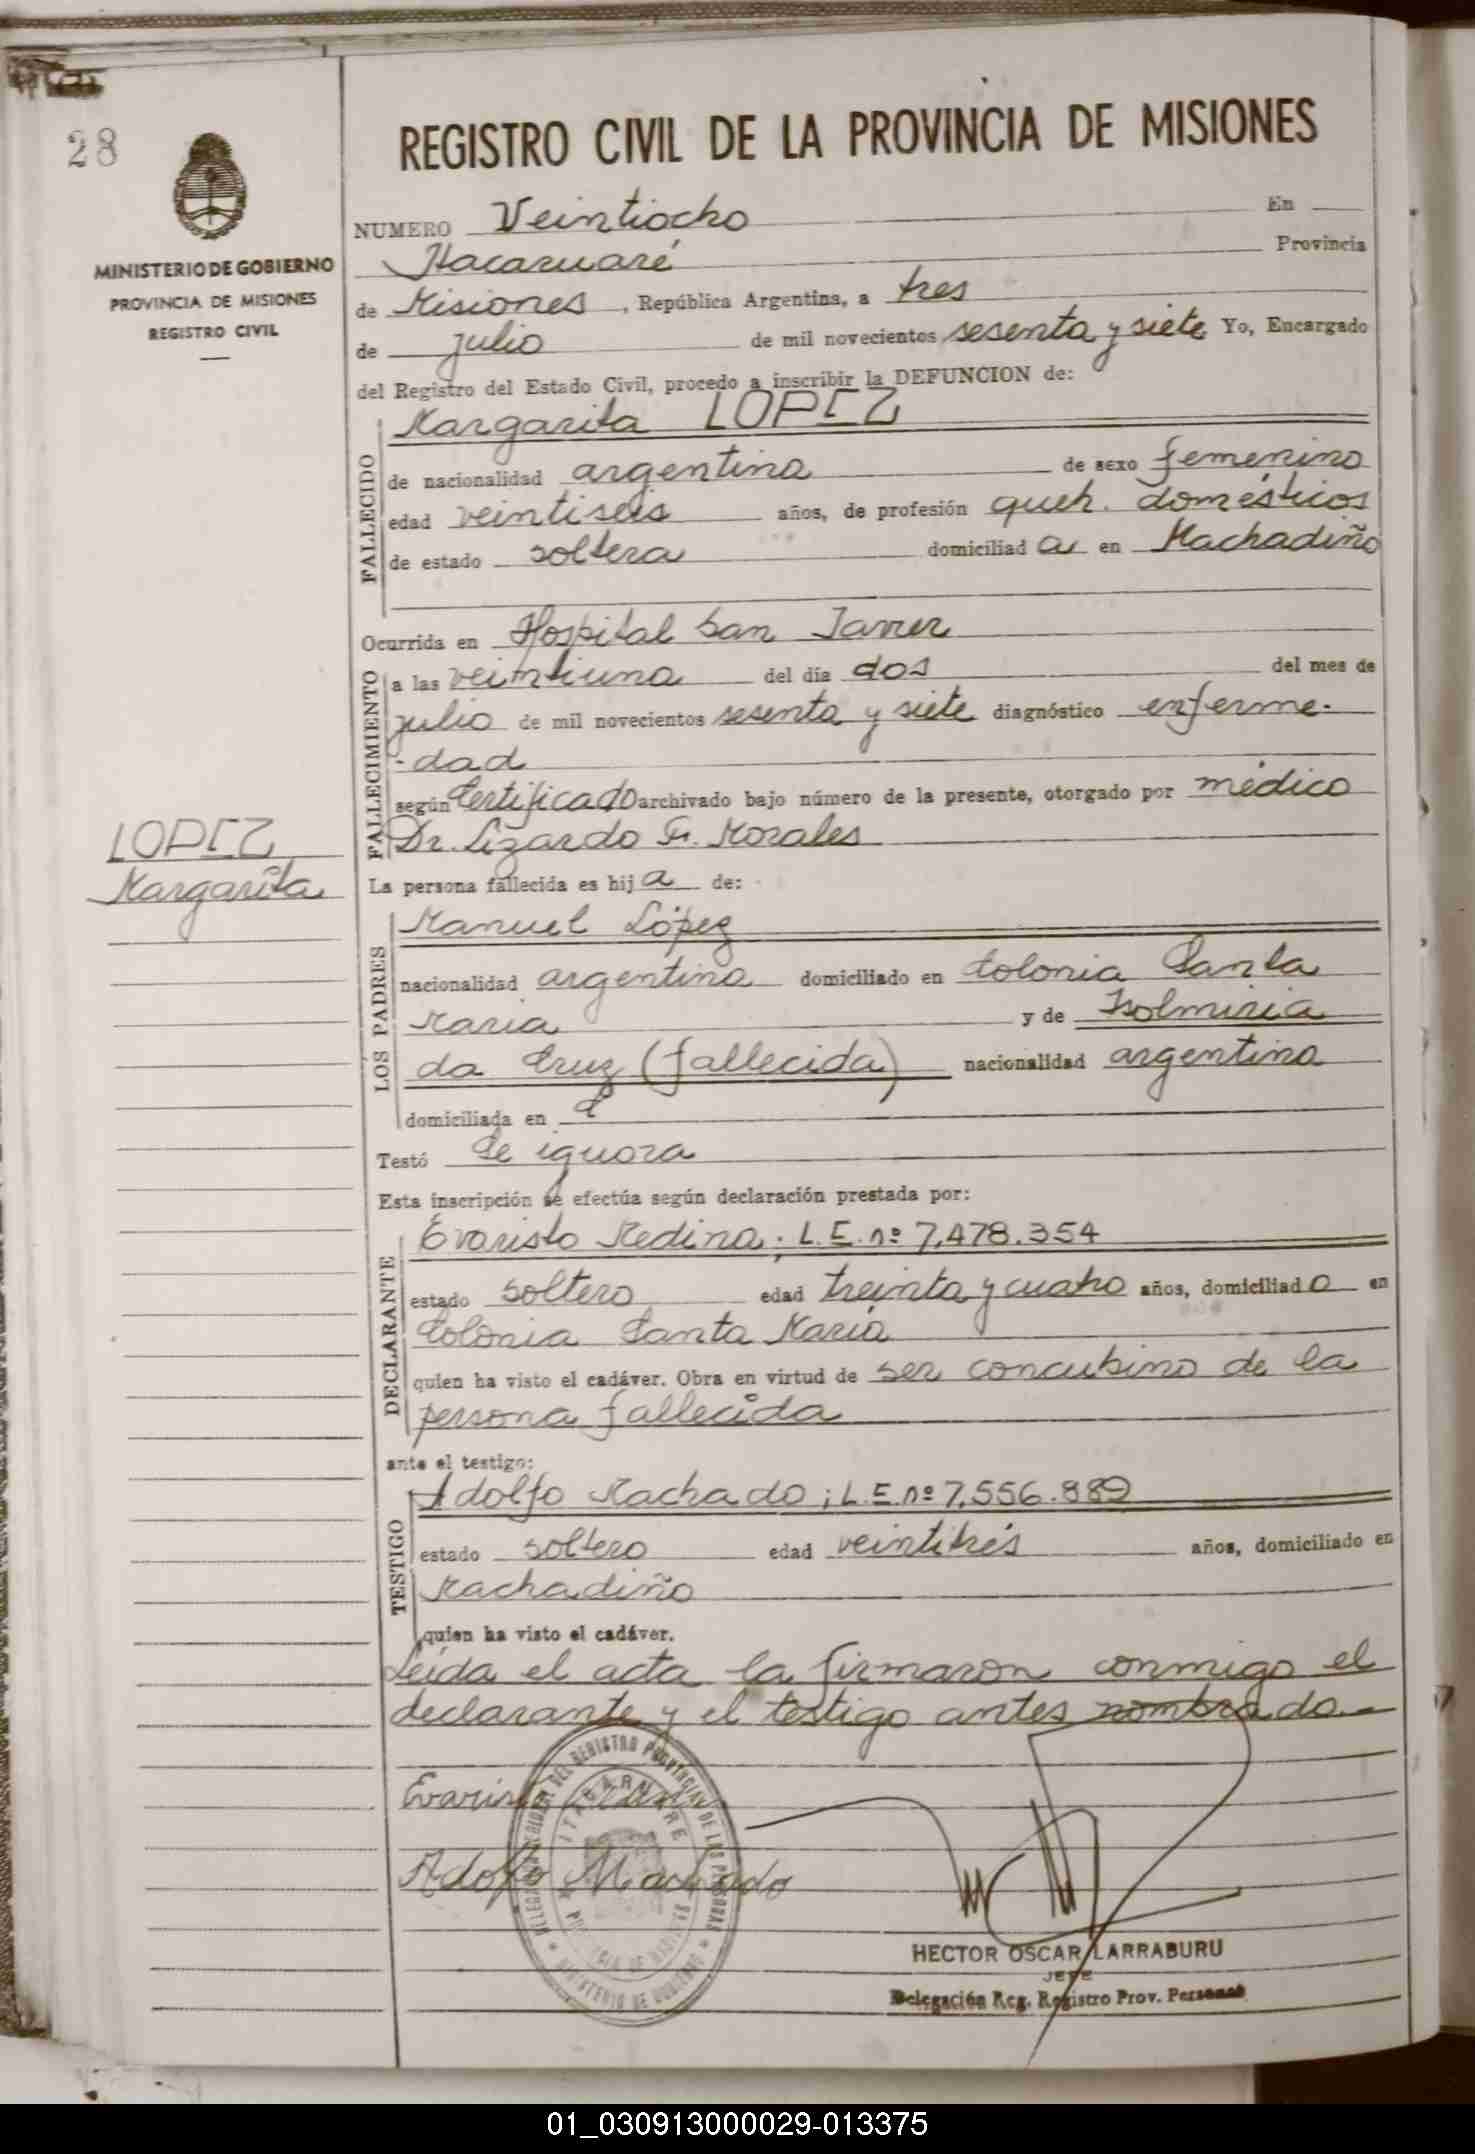 28
MINISTERIO DE GOBIERNO
PROVINCIA DE MISIONES
REGISTRO CIVIL
REGISTRO CIVIL DE LA PROVINCIA DE MISIONES
NUMERO Veintiocho En
Itacaruaré Provincia
de Misiones, República Argentina, a tres
de julio de mil novecientos sesenta y siete Yo, Encargado
del Registro del Estado Civil, procedo a inscribir la DEFUNCION de:
FALLECIDO
Margarita LOPEZ
de nacionalidad argentina de sexo femenino
edad veintiseis años, de profesión queh. domésticos
de estado soltera domiciliad a en Machadiño
Ocurrida en Hospital San Javier
FALLECIMIENTO
a las veintiuna del día dos del mes de
julio de mil novecientos sesenta y siete diagnóstico enferme-
-dad
según Certificado archivado bajo número de la presente, otorgado por médico
Dr. Lizardo F. Morales
LOPEZ
Margarita
La persona fallecida es hij a de:
LOS PADRES
Manuel López
nacionalidad argentina domiciliado en Colonia Santa
Maria y de Isolmiria
da Cruz (fallecida) nacionalidad argentina
domiciliada en
Testó Se ignora
Esta inscripción se efectúa según declaración prestada por:
DECLARANTE
Evaristo Medina; L.E. nº 7,478.354
estado soltero edad treinta y cuatro años, domiciliad o en
Colonia Santa María
quien ha visto el cadáver. Obra en virtud de ser concubino de la
persona fallecida
ante el testigo:
TESTIGO
Adolfo Machado; L.E. nº 7,556.889
estado soltero edad veintitrés años, domiciliado en
Machadiño
quien ha visto el cadáver.
Leída el acta la firmaron conmigo el
declarante y el testigo antes nombrado.-
Adolfo Machado
ITACARUARE
HECTOR OSCAR LARRABURU
JEFE
Delegación Reg. Registro Prov. Personas
01_030913000029-013375